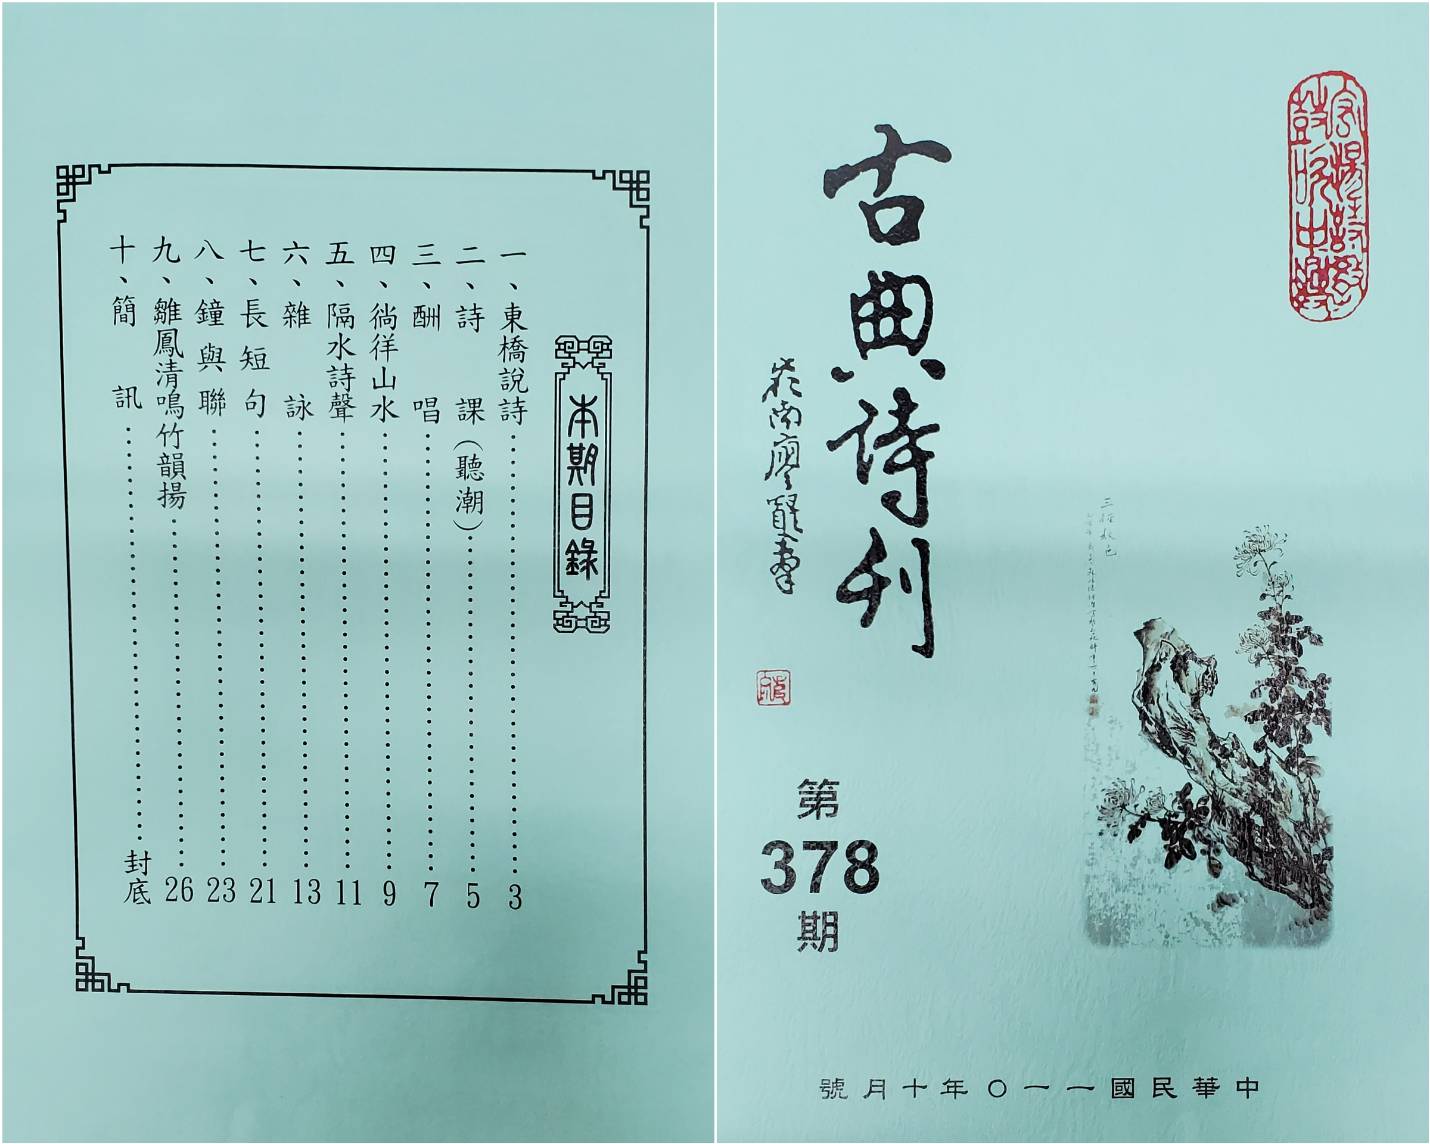 本期目錄
一、東橋說詩 3
二、詩課（聽潮） 5
三、酬唱 7
四、徜徉山水 9
五、隔水詩聲 11
六、雜詠 13
七、長短句 21
八、鐘與聯 23
九、雛鳳清鳴竹韻揚 26
十、簡訊 封底
宏揚詩教
鼓吹中興
古典诗刊
第
378
期
三徑秋色
中華民國一一〇年十月號